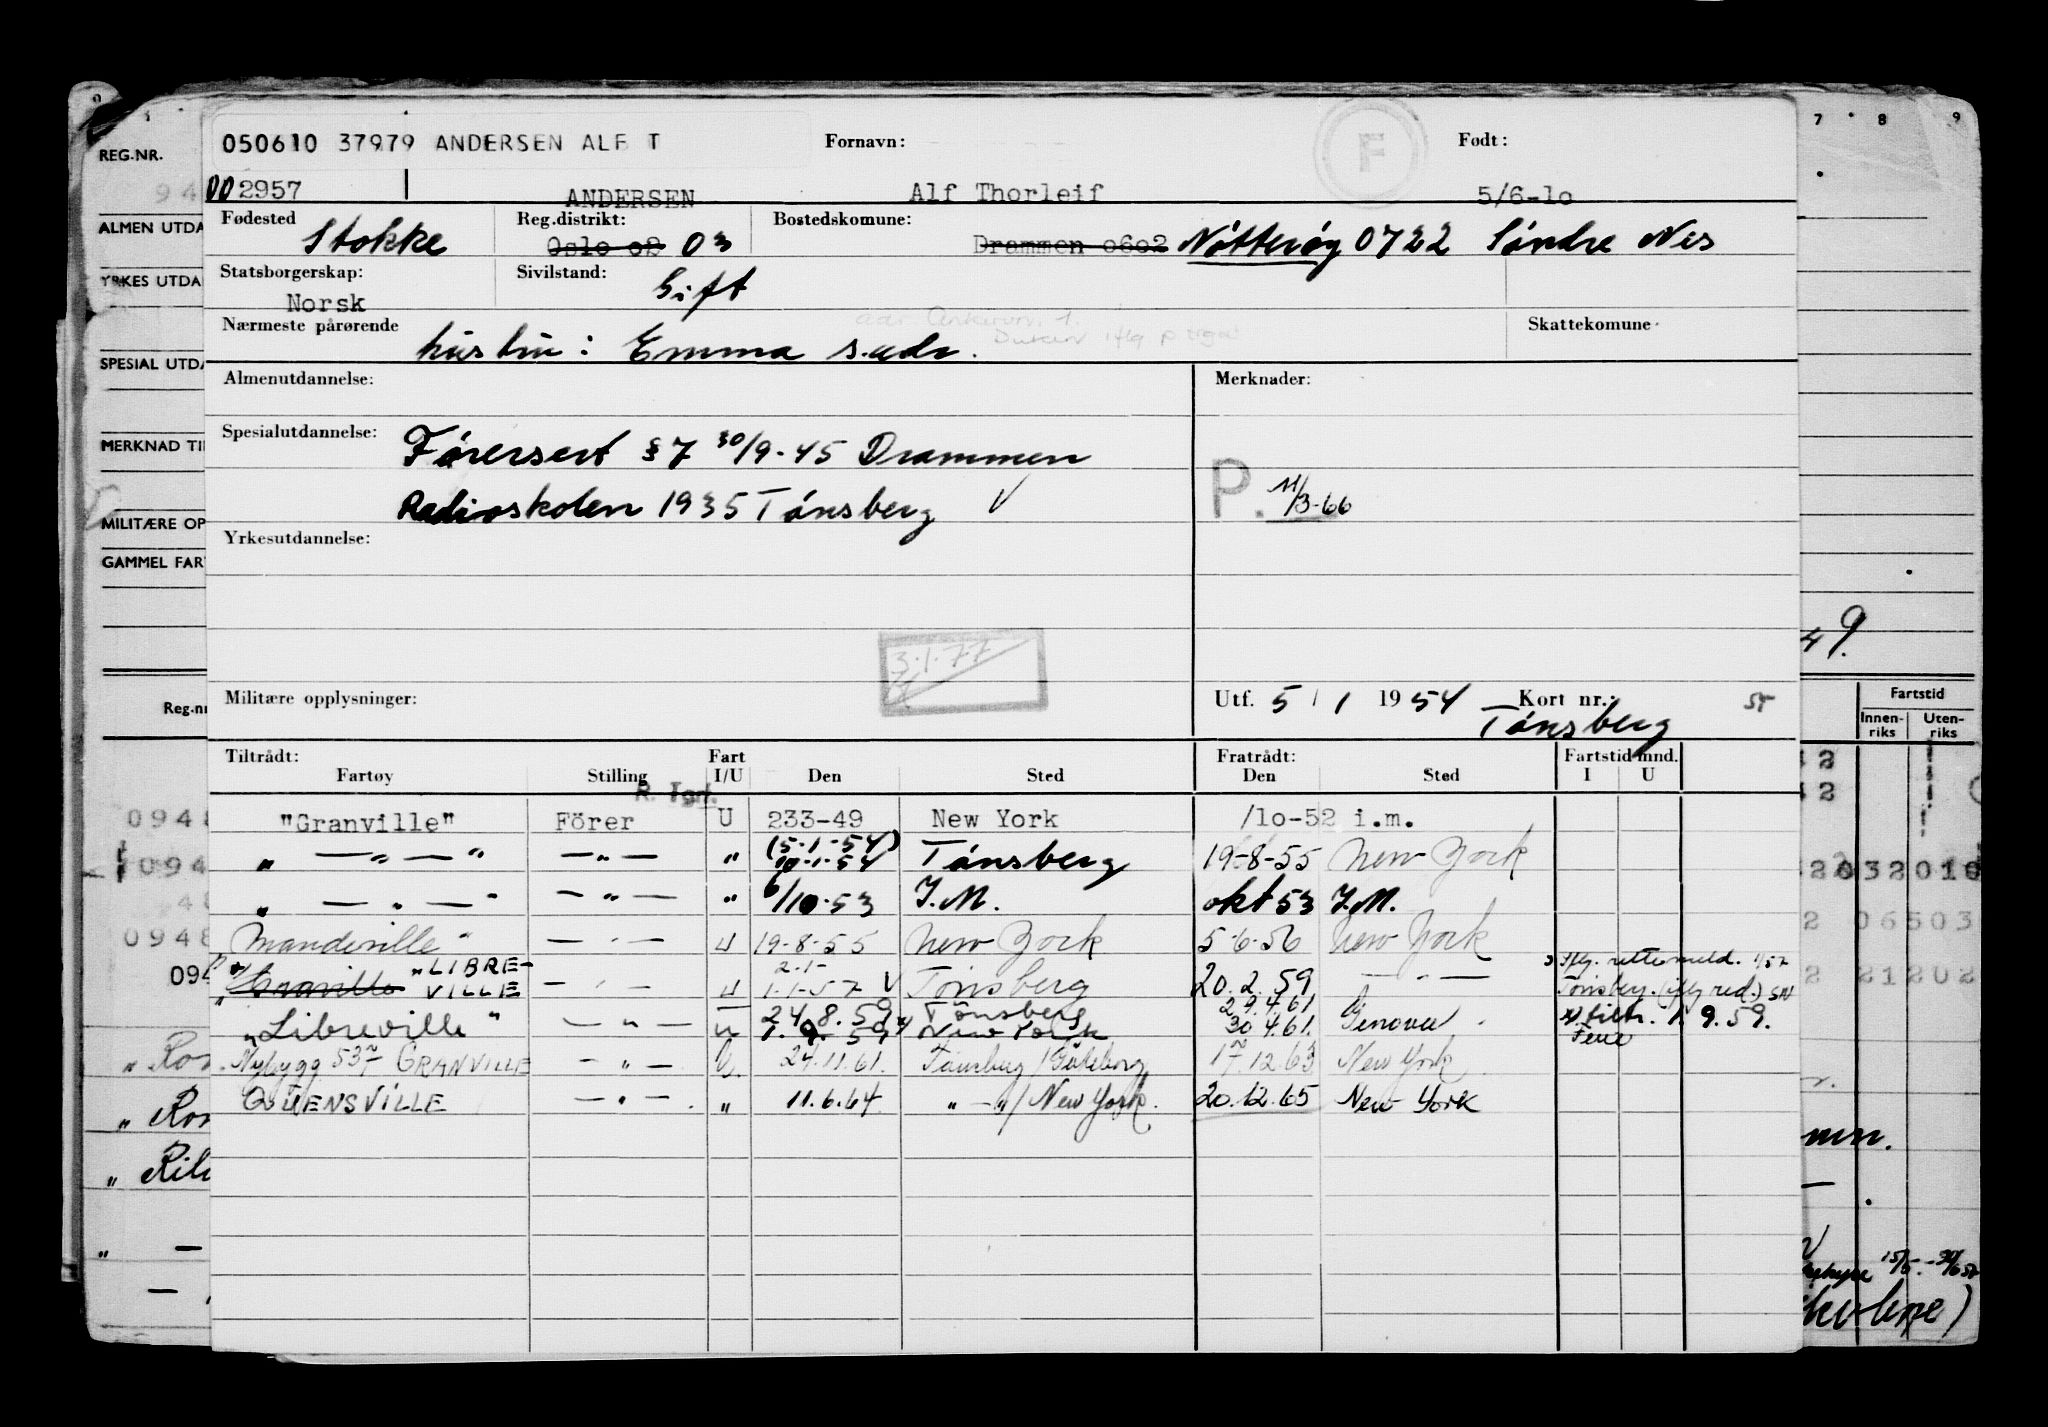 050610 37979 ANDERSEN ALF T Fornavn: F Født:
002957 ANDERSEN Alf Thorleif 5/6-1o
Fødested Stokke Reg.distrikt: Oslo o2 03 Bostedskomune: Drammen o6o2 Nøtterøy 0722 Söndre Nes
Statsborgerskap: Norsk Sivilstand: Gift
Nærmeste pårørende hustru: Emma s.adr. Skattekomune
Almenutdannelse: Merknader:
Spesialutdannelse: Førersert §7 30/9-45 Drammen
Radioskolen 1935 Tønsberg V P. 11/3-66
Yrkesutdannelse:
3.1.77
Militære opplysninger: Utf. 5/1 1954 Kort nr.: Tønsberg
Tiltrådt: Fart Fratrådt: Fartstid mnd.
Fartøy Stilling I/U Den Sted Den Sted I U
R. Tgrf.
"Granville" Förer U 233-49 New York /1o-52 i.m.
(5-1-54)
" — " — " — " — " 10-1-54 Tønsberg 19-8-55 New York
" — " — " — " — " 6/10-53 I.M. okt 53 I.M.
Mandeville" — " — U 19-8-55 New York 5-6-56 New York
Granville "LIBREVILLE — " — U 2-1- 1-1-57 V Tønsberg 20.2.59 — " —
24.8.59 Tönsberg 29.4.61
"Libreville" — " — U 1.9.59 New York 30.4.61 Genova. 1.9.59. Ferie
Nybygg 537 GRANVILLE — " — U. 24.11.61. Tønsberg/Göteborg 17.12.63 New York.
QUEENSVILLE — " — . " 11.6.64. " — "/New York. 20.12.65 New York
REG.NR.
ALMEN UTDA
YRKES UTDA
SPESIAL UTDA
MERKNAD TI
MILITÆRE OP
GAMMEL FAR
Reg.nr
0948
094
0948
094
" Ron
" Ril
7 8 9
49.
Fartstid
Innenriks Utenriks
42
42
032010
06503
21202